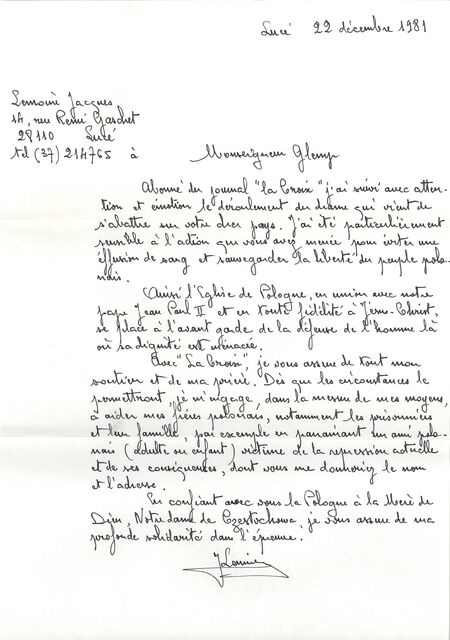 Lucé 22 décembre 1981
Lemoine Jacques
14, rue Remi Gaschet
28110 Lucé
tel (37) 214765 à Monseigneur Glemp
Abonné du journal "la Croix" j'ai suivi avec atten-
tion et émotion le déroulement du drame qui vient de
s'abattre sur votre cher pays. J'ai été particulièrement
sensible à l'action que vous avez menée pour éviter une
effusion de sang et sauvegarder la liberté du peuple polo-
nais.
Ainsi l'Eglise de Pologne, en union avec notre
pape Jean Paul II et en toute fidélité à Jésus-Christ,
se place à l'avant garde de la défense de l'homme là
où sa dignité est menacée.
Avec "La Croix", je vous assure de tout mon
soutien et de ma prière. Dès que les circonstances le
permettront, je m'engage, dans la mesure de mes moyens,
à aider mes frères polonais, notamment les prisonniers
et leur famille, par exemple en parrainant un ami polo-
nais (adulte ou enfant) victime de la repression actuelle
et de ses conséquences, dont vous me donneriez le nom
et l'adresse.
En confiant avec vous la Pologne à la Mère de
Dieu, Notre Dame de Czestochowa, je vous assure de ma
profonde solidarité dans l'épreuve.